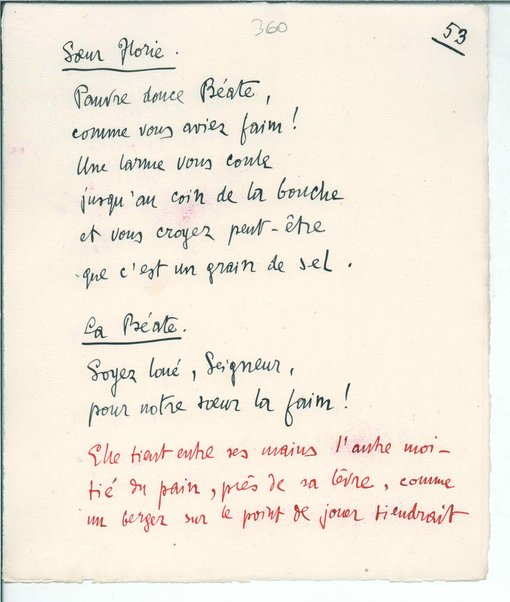 360
53
Sœur Florie.
Pauvre douce Béate,
comme vous aviez faim!
Une larme vous coule
jusqu'au coin de la bouche
et vous croyez peut-être
que c'est un grain de sel.
La Béate.
Soyez loué, Seigneur,
pour notre sœur la faim!
Elle tient entre ses mains l'autre moi-
tié du pain, près de sa lèvre, comme
un berger sur le point de jouer tiendrait